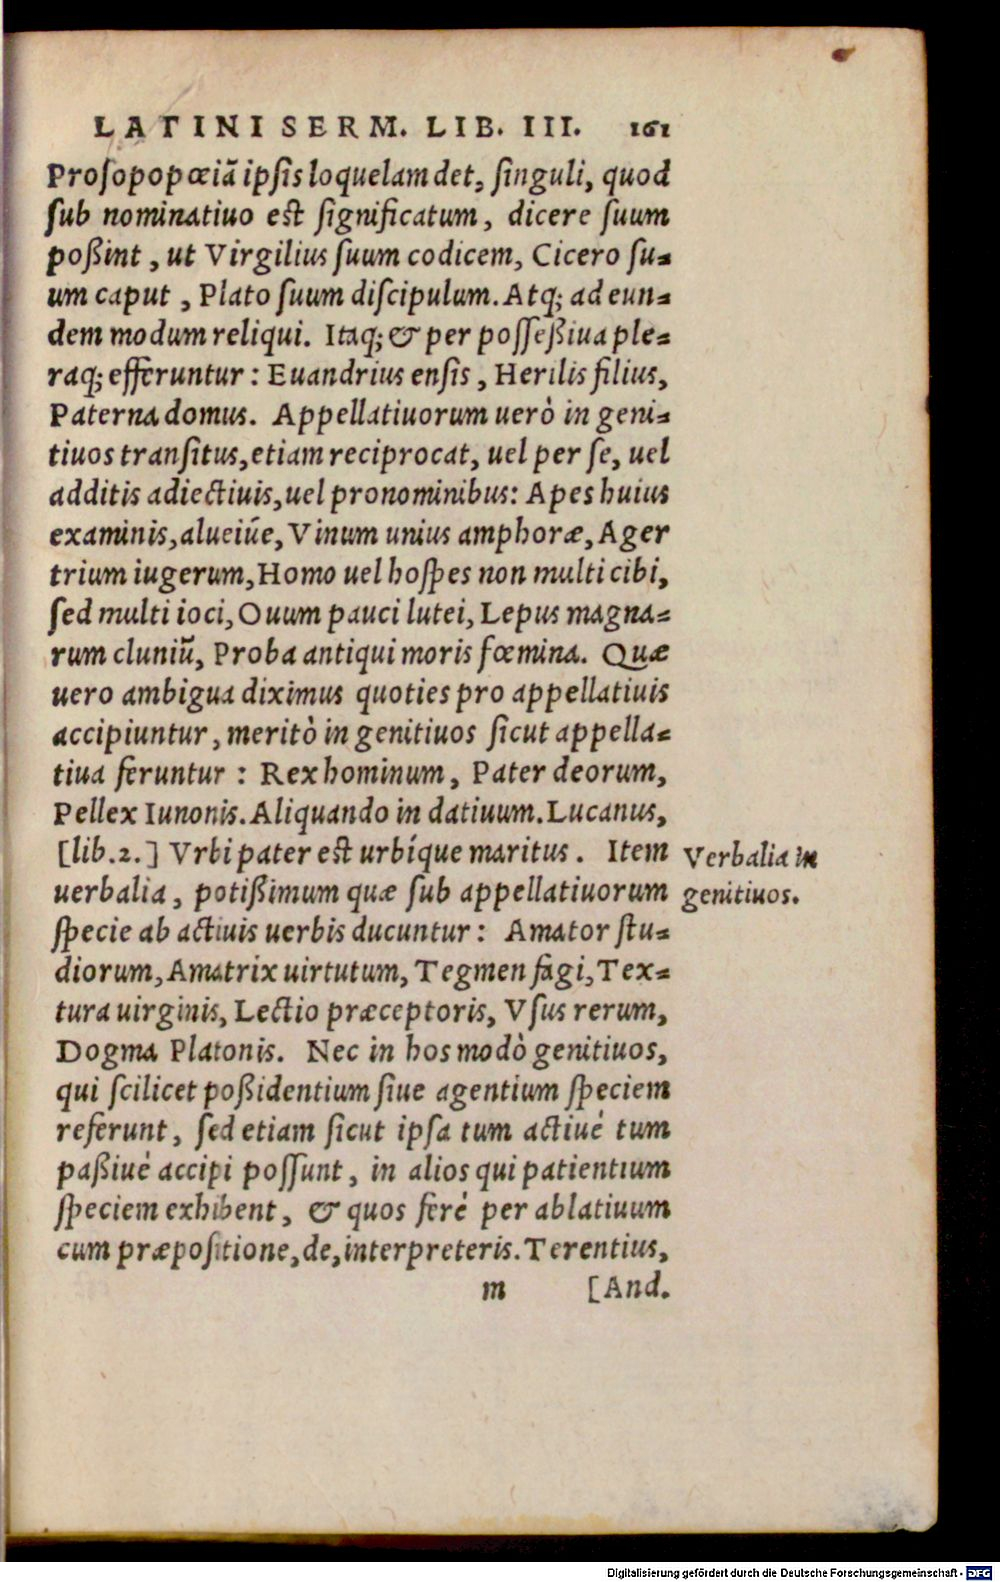 LATINI SERM. LIB. III. 161
Prosopopœiā ipsis loquelam det, singuli, quod
sub nominatiuo est significatum, dicere suum
poßint, ut Virgilius suum codicem, Cicero su-
um caput, Plato suum discipulum. Atq; ad eun-
dem modum reliqui. Itaq; & per posseßiua ple-
raq; efferuntur: Euandrius ensis, Herilis filius,
Paterna domus. Appellatiuorum uerò in geni-
tiuos transitus, etiam reciprocat, uel per se, uel
additis adiectiuis, uel pronominibus: Apes huius
examinis, alueiūe, Vinum unius amphoræ, Ager
trium iugerum, Homo uel hospes non multi cibi,
sed multi ioci, Ouum pauci lutei, Lepus magna-
rum cluniū, Proba antiqui moris fœmina. Quæ
uero ambigua diximus quoties pro appellatiuis
accipiuntur, meritò in genitiuos sicut appella-
tiua feruntur: Rex hominum, Pater deorum,
Pellex Iunonis. Aliquando in datiuum. Lucanus,
[lib.2.] Vrbi pater est urbíque maritus. Item
Verbalia in
uerbalia, potißimum quæ sub appellatiuorum
genitiuos.
specie ab actiuis uerbis ducuntur: Amator stu-
diorum, Amatrix uirtutum, Tegmen fagi, Tex-
tura uirginis, Lectio præceptoris, Vsus rerum,
Dogma Platonis. Nec in hos modò genitiuos,
qui scilicet poßidentium siue agentium speciem
referunt, sed etiam sicut ipsa tum actiué tum
paßiué accipi possunt, in alios qui patientium
speciem exhibent, & quos feré per ablatiuum
cum præpositione, de, interpreteris. Terentius,
m [And.
Digitalisierung gefördert durch die Deutsche Forschungsgemeinschaft - DFG